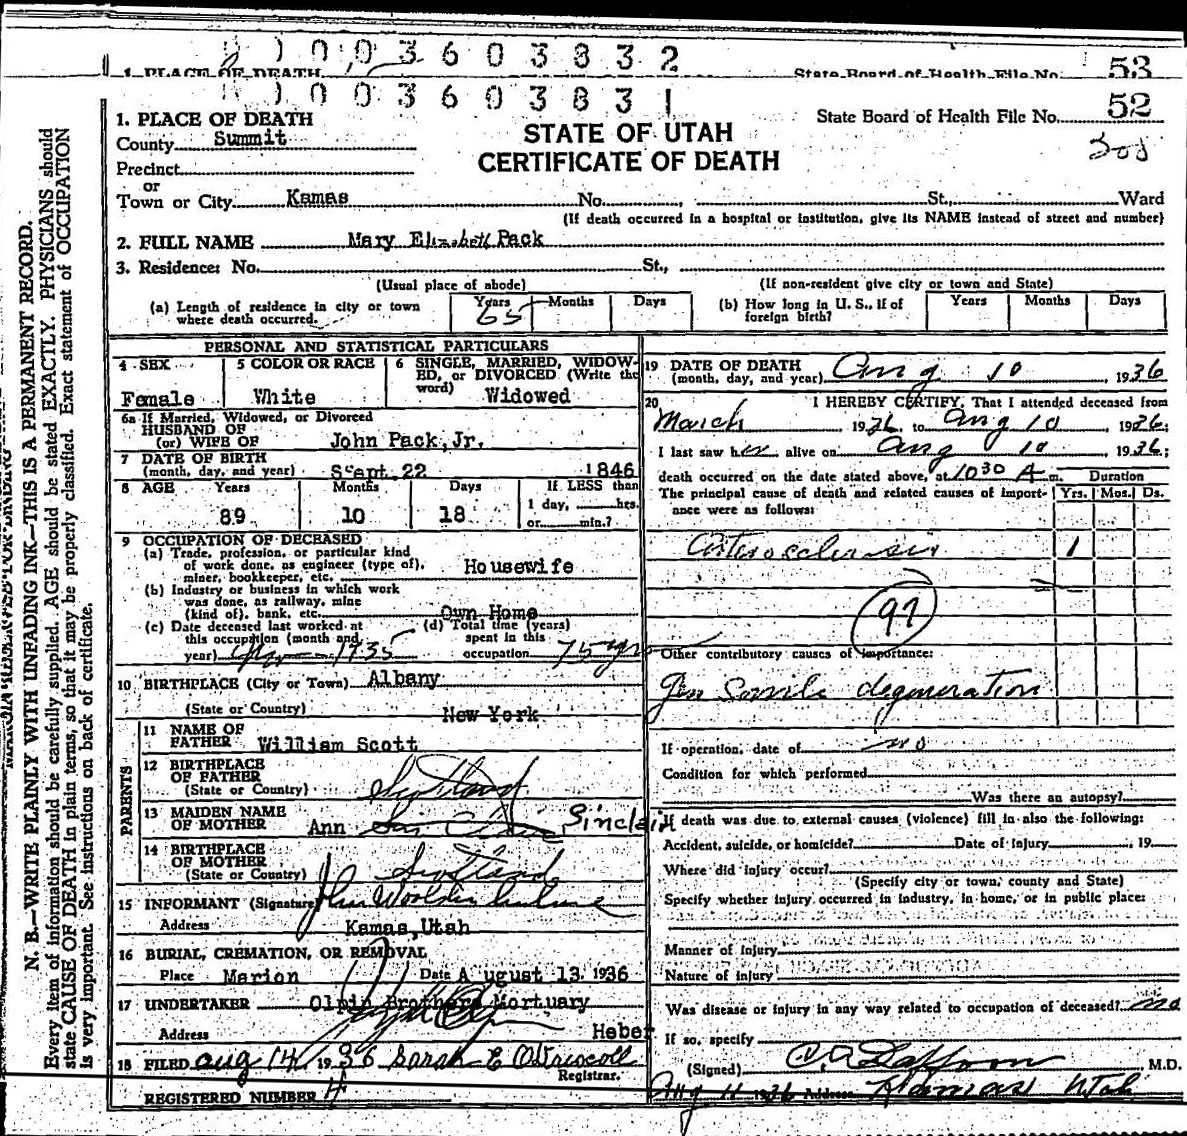 0 0 3 6 0 3 8 3 2
1. PLACE OF DEATH State Board of Health File No. 53
0 0 3 6 0 3 8 3 1
1. PLACE OF DEATH
County Summit
STATE OF UTAH
CERTIFICATE OF DEATH
State Board of Health File No. 52
Precinct
or
Town or City Kamas No. , St., Ward
(If death occurred in a hospital or institution, give its NAME instead of street and number)
2. FULL NAME Mary Elizabeth Pack
3. Residence: No. St.,
(Usual place of abode) (If non-resident give city or town and State)
(a) Length of residence in city or town where death occurred. Years 65 Months Days
(b) How long in U. S., if of foreign birth? Years Months Days
PERSONAL AND STATISTICAL PARTICULARS
4 SEX Female
5 COLOR OR RACE White
6 SINGLE, MARRIED, WIDOWED, or DIVORCED (Write the word) Widowed
6a If Married, Widowed, or Divorced
HUSBAND OF
(or) WIFE OF John Pack, Jr.
7 DATE OF BIRTH
(month, day, and year) Sept. 22 1846
8 AGE Years Months Days If LESS than
89 10 18 1 day, hrs.
or min.?
9 OCCUPATION OF DECEASED
(a) Trade, profession, or particular kind
of work done, as engineer (type of),
miner, bookkeeper, etc. Housewife
(b) Industry or business in which work
was done, as railway, mine
(kind of), bank, etc. Own Home
(c) Date deceased last worked at
this occupation (month and
year) 1935
(d) Total time (years)
spent in this
occupation 75 yrs
10 BIRTHPLACE (City or Town) Albany
(State or Country) New York
PARENTS
11 NAME OF
FATHER William Scott
12 BIRTHPLACE
OF FATHER
(State or Country) Scotland
13 MAIDEN NAME
OF MOTHER Ann Sinclair
14 BIRTHPLACE
OF MOTHER
(State or Country) Scotland
15 INFORMANT (Signature)
Address Kamas, Utah
16 BURIAL, CREMATION, OR REMOVAL
Place Marion Date August 13 1936
17 UNDERTAKER Olpin Brothers Mortuary
Address Heber
18 FILED Aug 14, 1936 Sarah E O'Driscoll
Registrar.
REGISTERED NUMBER 4
19 DATE OF DEATH
(month, day, and year) Aug 10, 1936
20 I HEREBY CERTIFY, That I attended deceased from
March 1936, to Aug 10, 1936;
I last saw her alive on Aug 10, 1936;
death occurred on the date stated above, at 10 30 A m.
Duration
The principal cause of death and related causes of importance were as follows: Yrs. Mos. Ds.
Arteriosclerosis 1
97
Other contributory causes of importance:
Gen Senile degeneration
If operation, date of no
Condition for which performed
Was there an autopsy?
If death was due to external causes (violence) fill in also the following:
Accident, suicide, or homicide? Date of injury , 19
Where did injury occur?
(Specify city or town, county and State)
Specify whether injury occurred in industry, in home, or in public place:
Manner of injury
Nature of injury
Was disease or injury in any way related to occupation of deceased? no
If so, specify
(Signed) M.D.
Aug 11 1936 Address Kamas Utah
N. B.—WRITE PLAINLY WITH UNFADING INK—THIS IS A PERMANENT RECORD.
Every item of information should be carefully supplied. AGE should be stated EXACTLY. PHYSICIANS should
state CAUSE OF DEATH in plain terms, so that it may be properly classified. Exact statement of OCCUPATION
is very important. See instructions on back of certificate.